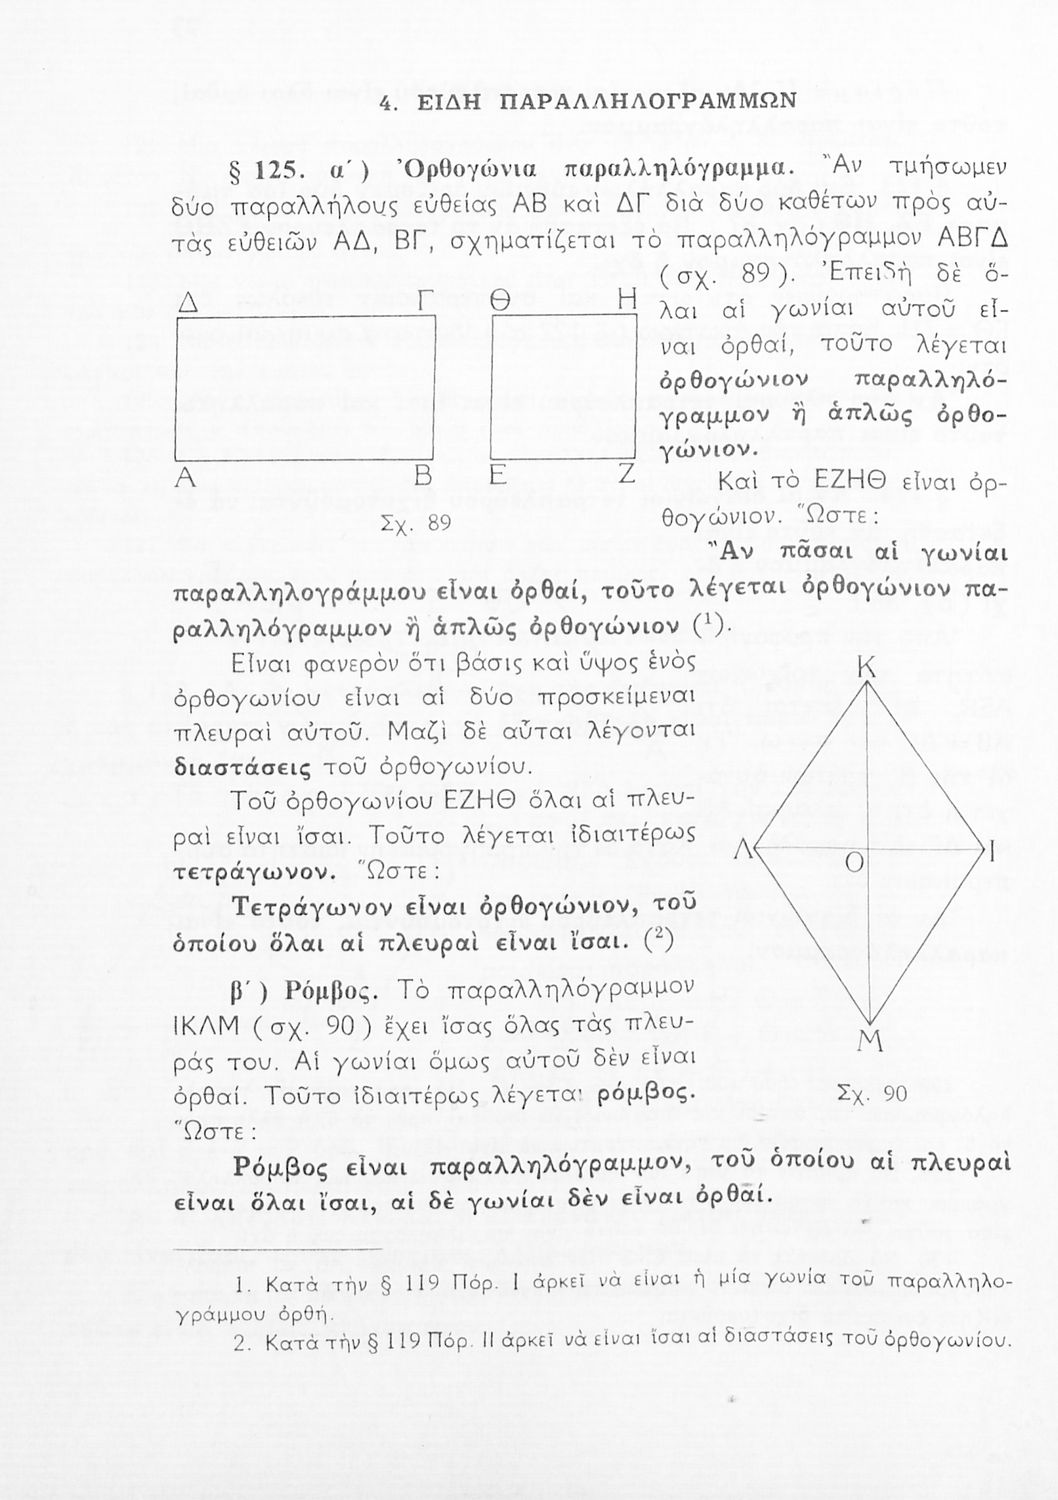 4. ΕΙΔΗ ΠΑΡΑΛΛΗΛΟΓΡΑΜΜΩΝ
§ 125. α΄) Ὀρθογώνια παραλληλόγραμμα. Ἂν τμήσωμεν
δύο παραλλήλους εὐθείας ΑΒ καὶ ΔΓ διὰ δύο καθέτων πρὸς αὐ-
τὰς εὐθειῶν ΑΔ, ΒΓ, σχηματίζεται τὸ παραλληλόγραμμον ΑΒΓΔ
(σχ. 89). Ἐπειδὴ δὲ ὅ-
λαι αἱ γωνίαι αὐτοῦ εἶ-
ναι ὀρθαί, τοῦτο λέγεται
ὀρθογώνιον παραλληλό-
γραμμον ἢ ἁπλῶς ὀρθο-
γώνιον.
Δ Γ Θ Η
Α Β Ε Ζ
Σχ. 89
Καὶ τὸ ΕΖΗΘ εἶναι ὀρ-
θογώνιον. Ὥστε:
Ἂν πᾶσαι αἱ γωνίαι
παραλληλογράμμου εἶναι ὀρθαί, τοῦτο λέγεται ὀρθογώνιον πα-
ραλληλόγραμμον ἢ ἁπλῶς ὀρθογώνιον (¹).
Εἶναι φανερὸν ὅτι βάσις καὶ ὕψος ἑνὸς
ὀρθογωνίου εἶναι αἱ δύο προσκείμεναι
πλευραὶ αὐτοῦ. Μαζὶ δὲ αὗται λέγονται
διαστάσεις τοῦ ὀρθογωνίου.
Τοῦ ὀρθογωνίου ΕΖΗΘ ὅλαι αἱ πλευ-
ραὶ εἶναι ἴσαι. Τοῦτο λέγεται ἰδιαιτέρως
τετράγωνον. Ὥστε:
Τετράγωνον εἶναι ὀρθογώνιον, τοῦ
ὁποίου ὅλαι αἱ πλευραὶ εἶναι ἴσαι. (²)
β΄) Ρόμβος. Τὸ παραλληλόγραμμον
ΙΚΛΜ (σχ. 90) ἔχει ἴσας ὅλας τὰς πλευ-
ράς του. Αἱ γωνίαι ὅμως αὐτοῦ δὲν εἶναι
ὀρθαί. Τοῦτο ἰδιαιτέρως λέγεται ρόμβος.
Ὥστε:
Κ
Λ Ο Ι
Μ
Σχ. 90
Ρόμβος εἶναι παραλληλόγραμμον, τοῦ ὁποίου αἱ πλευραὶ
εἶναι ὅλαι ἴσαι, αἱ δὲ γωνίαι δὲν εἶναι ὀρθαί.
1. Κατὰ τὴν § 119 Πόρ. Ι ἀρκεῖ νὰ εἶναι ἡ μία γωνία τοῦ παραλληλο-
γράμμου ὀρθή.
2. Κατὰ τὴν § 119 Πόρ. ΙΙ ἀρκεῖ νὰ εἶναι ἴσαι αἱ διαστάσεις τοῦ ὀρθογωνίου.